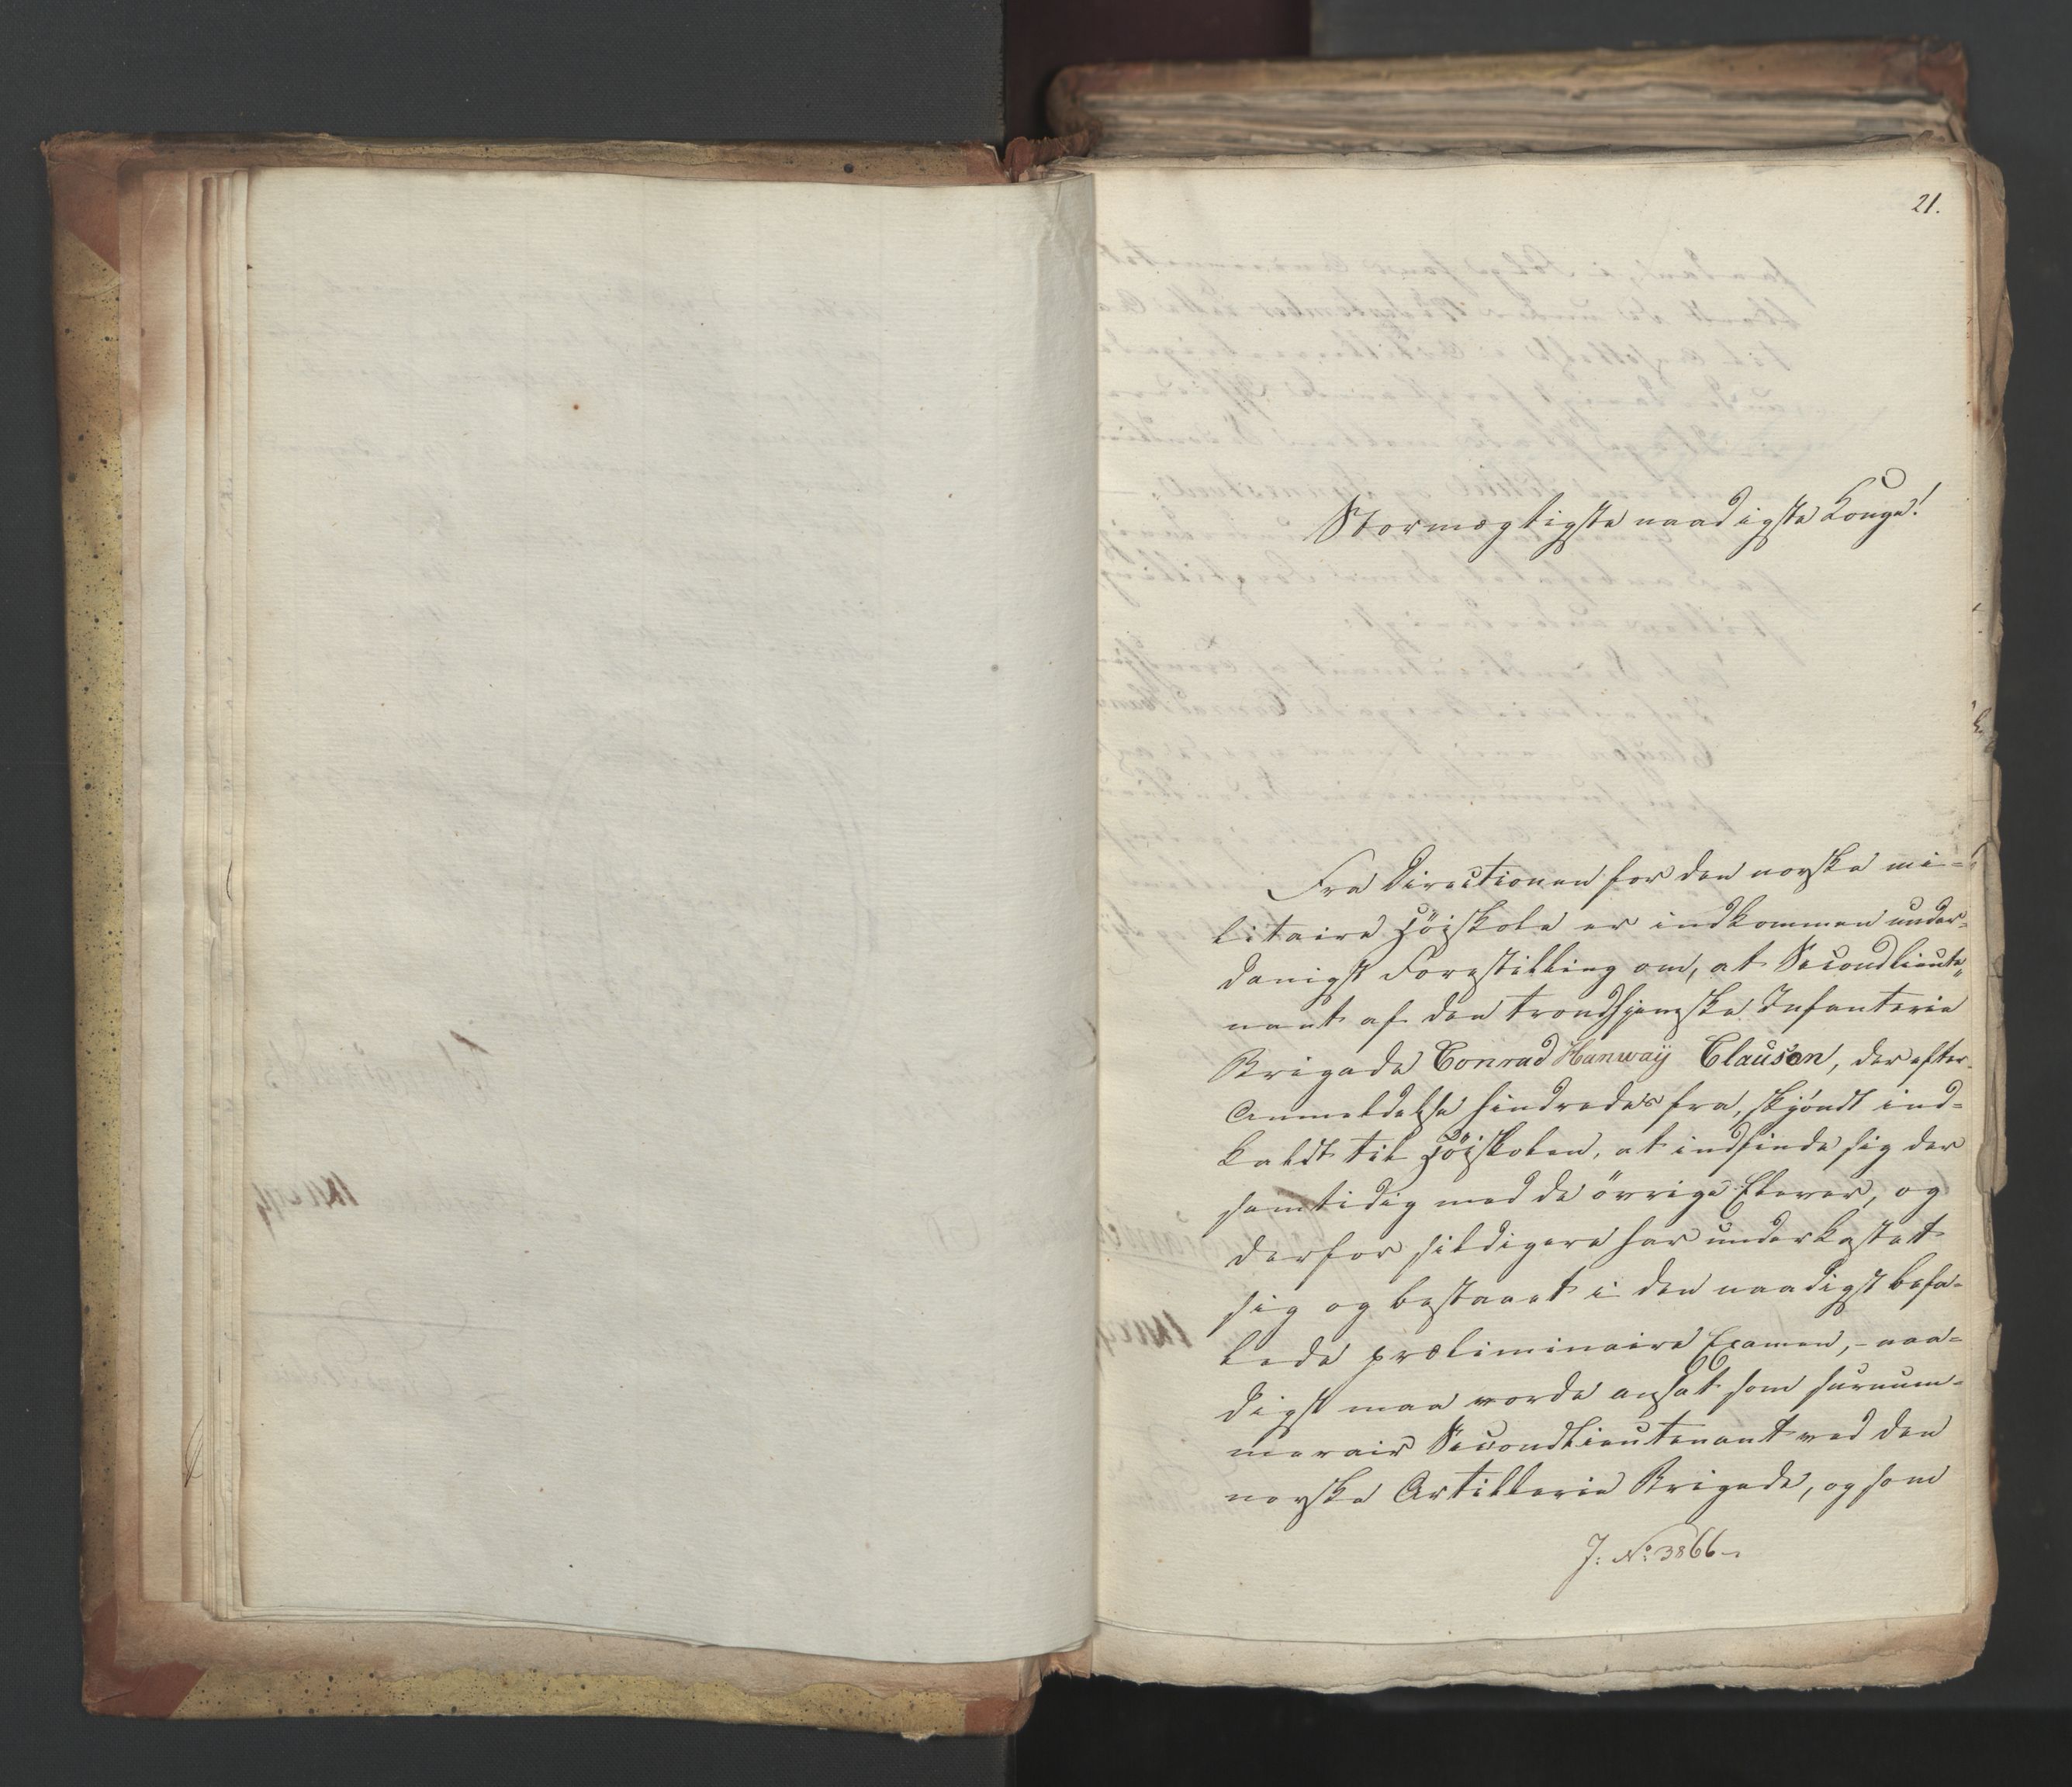 21.
Stormægtigste naadigste Konge!
Fra Directionen for den norske mi=
litaire Høiskole er indkommen under=
danigst Forestilling om, at Secondlieute„
nant af den trondhjemske Infanterie
Brigade Conrad Hanway Clauson, der efter
Anmeldelse hindredes fra, skjöndt ind=
kaldt til Høiskolen, at indfinde sig der
samtidig med de övrige Elever, og
derfor sildigere har underkastet
sig og bestaaet i den naadigst befa=
lede præliminaire Examen, - naa=
digst maa vorde ansat som surnum=
merair Secondlieutenant ved den
norske Artillerie Brigade, og som
J: No: 3866